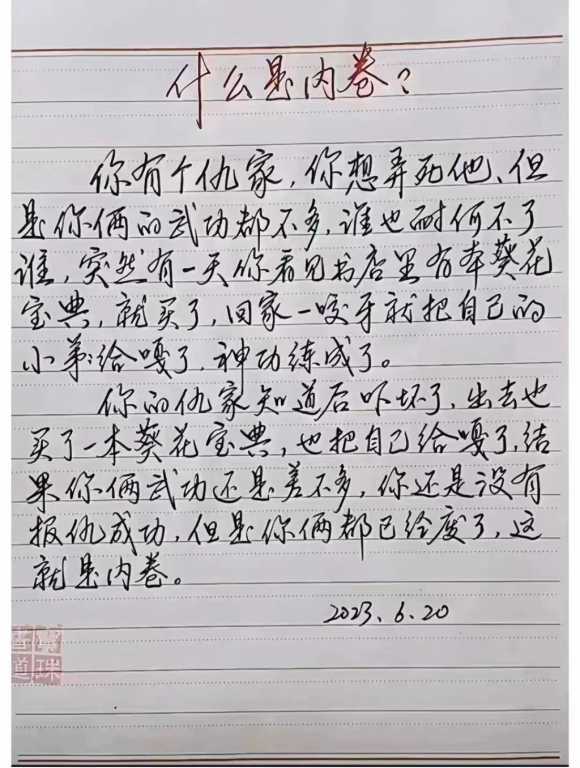 什么是内卷？
你有个仇家，你想弄死他、但
是你俩的武功都不多，谁也耐何不了
谁，突然有一天你看见书店里有本葵花
宝典，就买了，回家一咬牙就把自己的
小弟弟给嘎了，神功练成了。
你的仇家知道后吓坏了，出去也
买了一本葵花宝典，也把自己给嘎了，结
果你俩武功还是差不多，你还是没有
报仇成功，但是你俩都已经废了，这
就是内卷。
2023.6.20